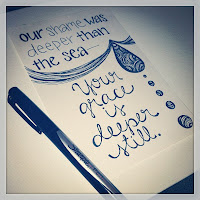 our shame was
deeper than
the sea
Your
grace
is
deeper
still.